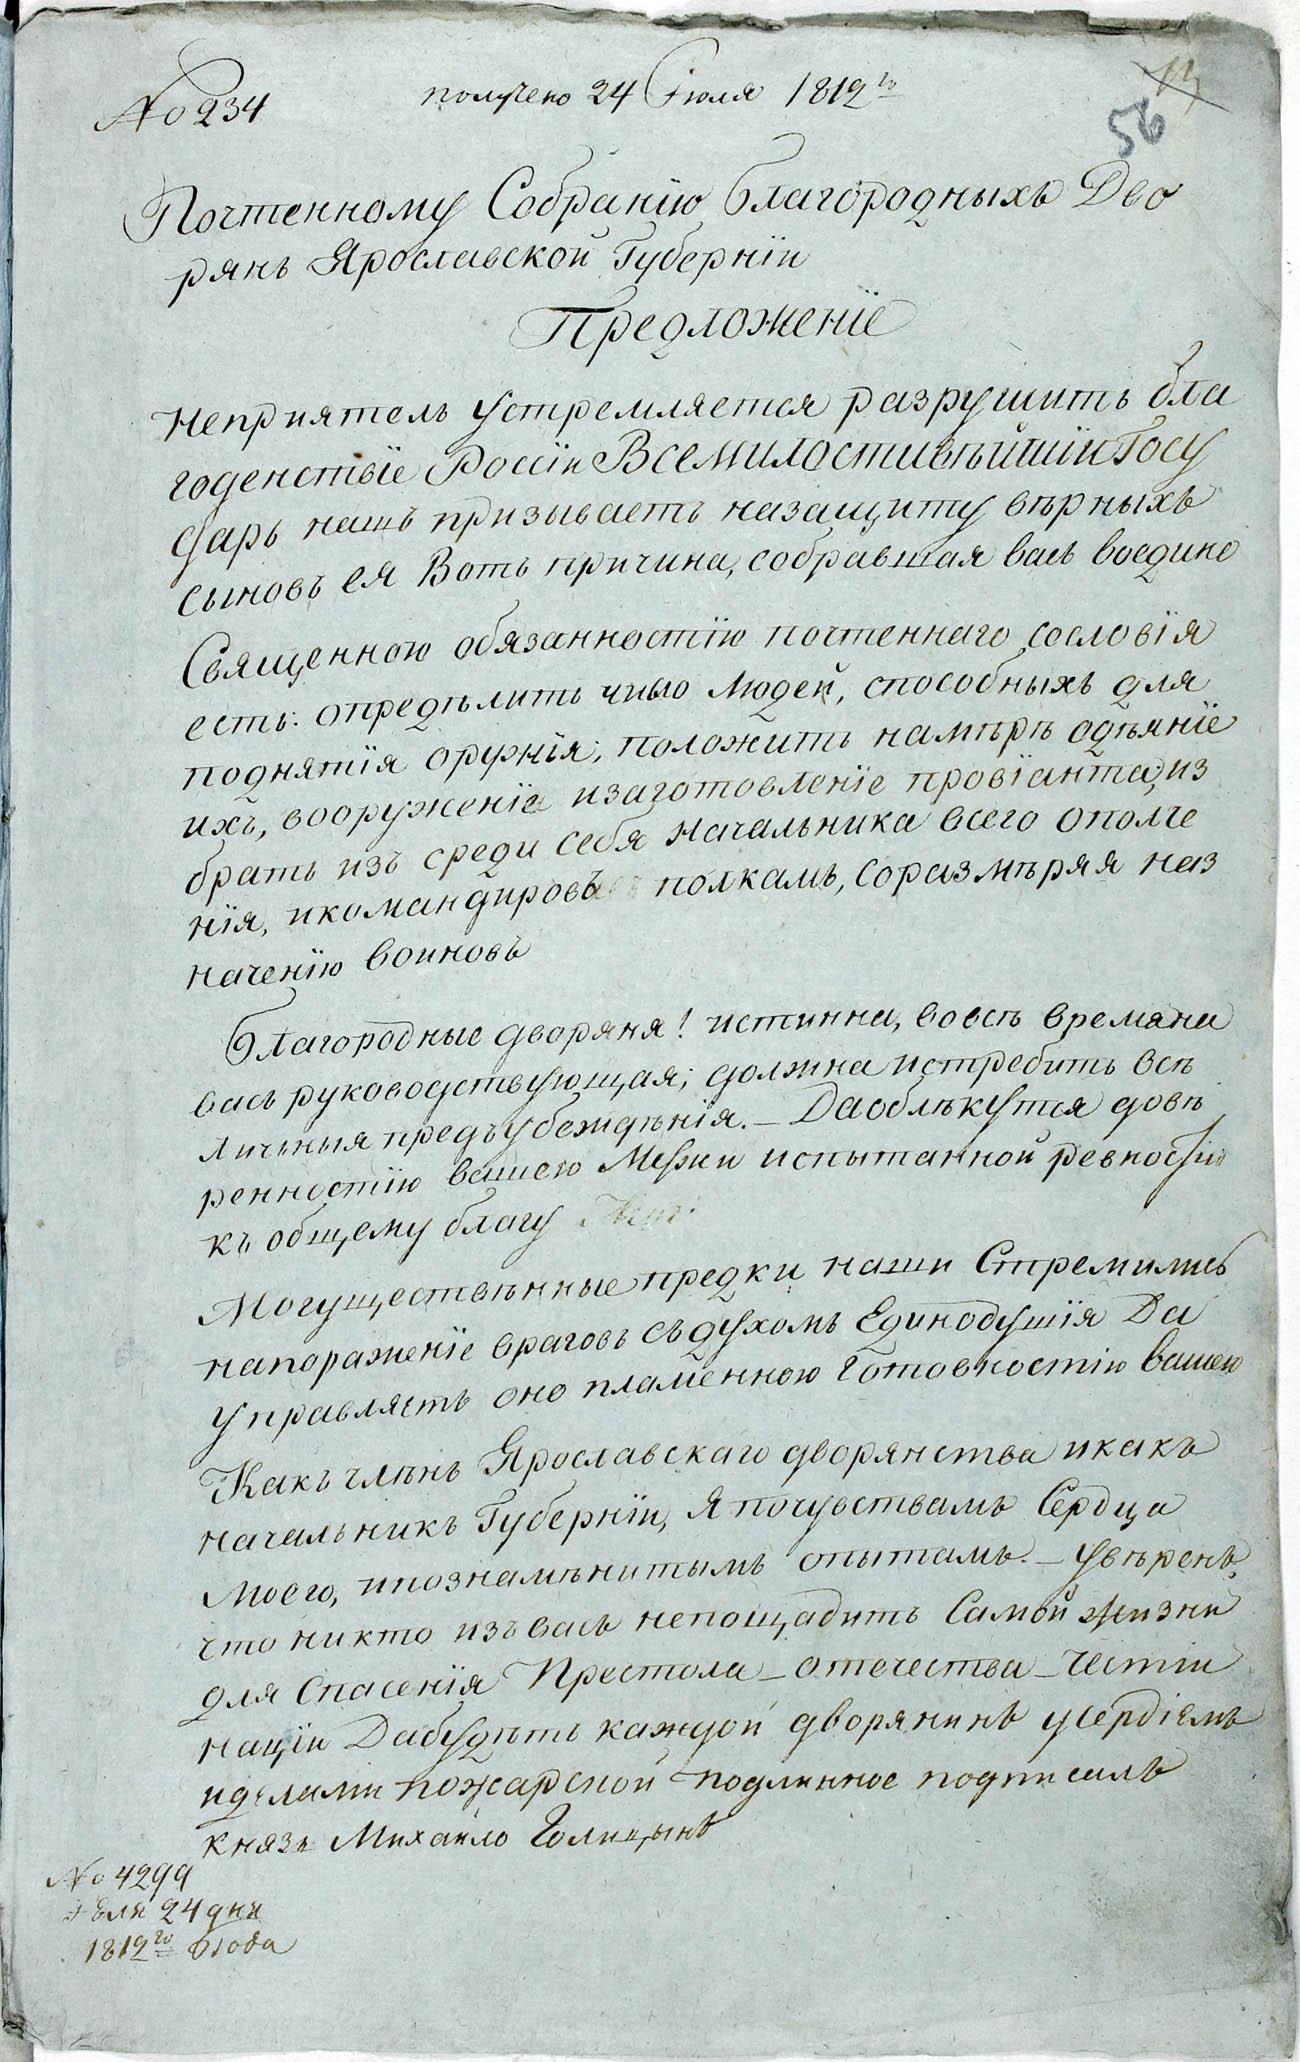 № 234
получено 24 Июля 1812го
13
56
Почтенному Собранію благородныхъ Дво
рянъ Ярославской Губерніи
Предложеніе
Непріятель устремляется разрушить бла
годенствіе Россіи Всемилостивѣйшій Госу
дарь нашъ призываетъ назащиту вѣрныхъ
сыновъ ея Вотъ причина, собравшая васъ воедино
Священною обязанностію почтеннаго сословія
есть: опредѣлить число людей, способныхъ для
поднятія оружія; положить намѣръ одѣяніе
ихъ, вооруженіе изаготовленіе провіанта, из
брать изъ среди себя начальника всего ополче
нія, икомандировъ полкамъ, соразмѣряя наз
наченію воиновъ
Благородные дворяня! истинна, вовсѣ времяна
васъ руководствующая; должна истребить всѣ
личныя предъубежденія. _ Даоблѣкутся довѣ
ренностію вашею Мужи испытанной ревностію
къ общему благу
Могуществѣнные предки наши Стремились
напораженіе враговъ съдухомъ Единодушія Да
управляетъ оно пламенною готовностію вашею
Какъ члѣнъ Ярославскаго дворянства икакъ
начальникъ Губерніи, Я почувствамъ Сердца
Моего, ипознамѣнитымъ опытамъ. _ увѣренъ,
что никто изъвасъ непощадитъ Самой жизни
для Спасенія Престола _ отечества _ Чести
націи Дабудѣтъ каждой дворянинъ усердіемъ
идѣлами пожарской подлинное подписалъ
князь Михайло Голицынъ
№ 4299
Іюля 24 дня
1812го Года